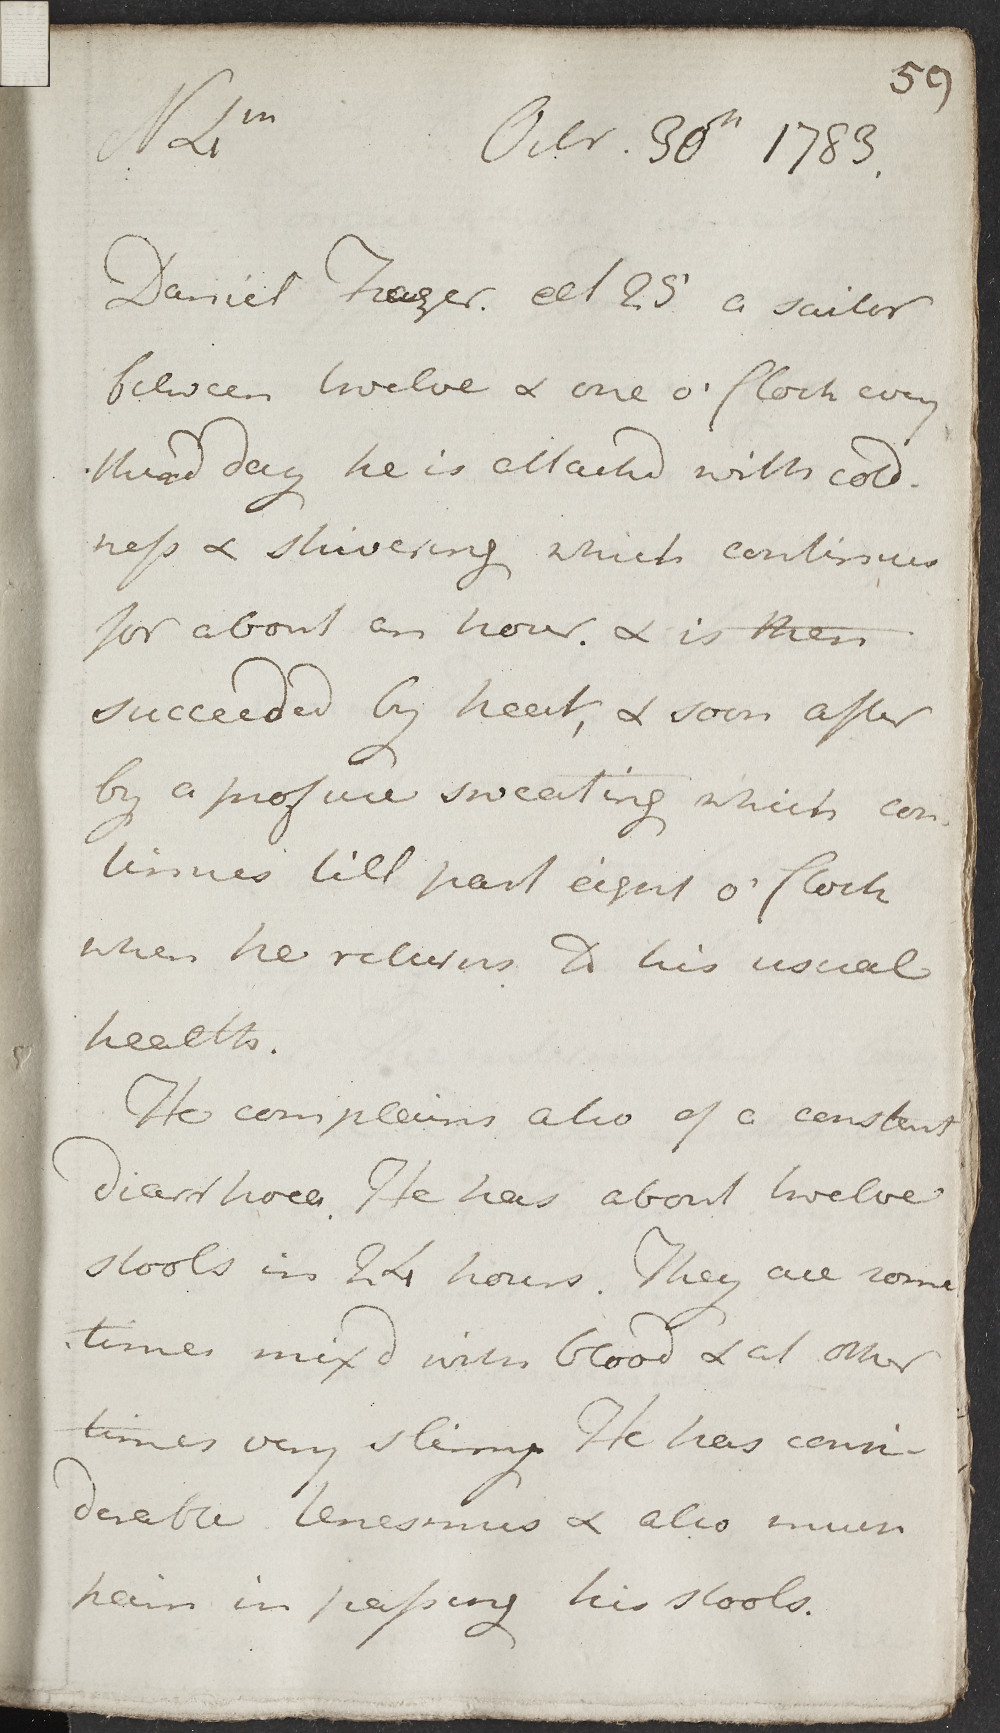 59
N 4th Octr. 30th 1783.
Daniel Frazer. aet 25 a sailor
between twelve & one o' Clock every
third day he is attackd with cold-
ness & shivering which continues
for about an hour. & is then
succeeded by heat, & soon after
by a profuse sweating which con-
tinues till past eight o' Clock
when he returns to his usual
health.
He complains also of a constant
diarrhoea. He has about twelve
stools in 24 hours. They are some
times mixd with blood & at other
times very slimy He has consi-
derable tenesmus & also much
pain in passing his stools.